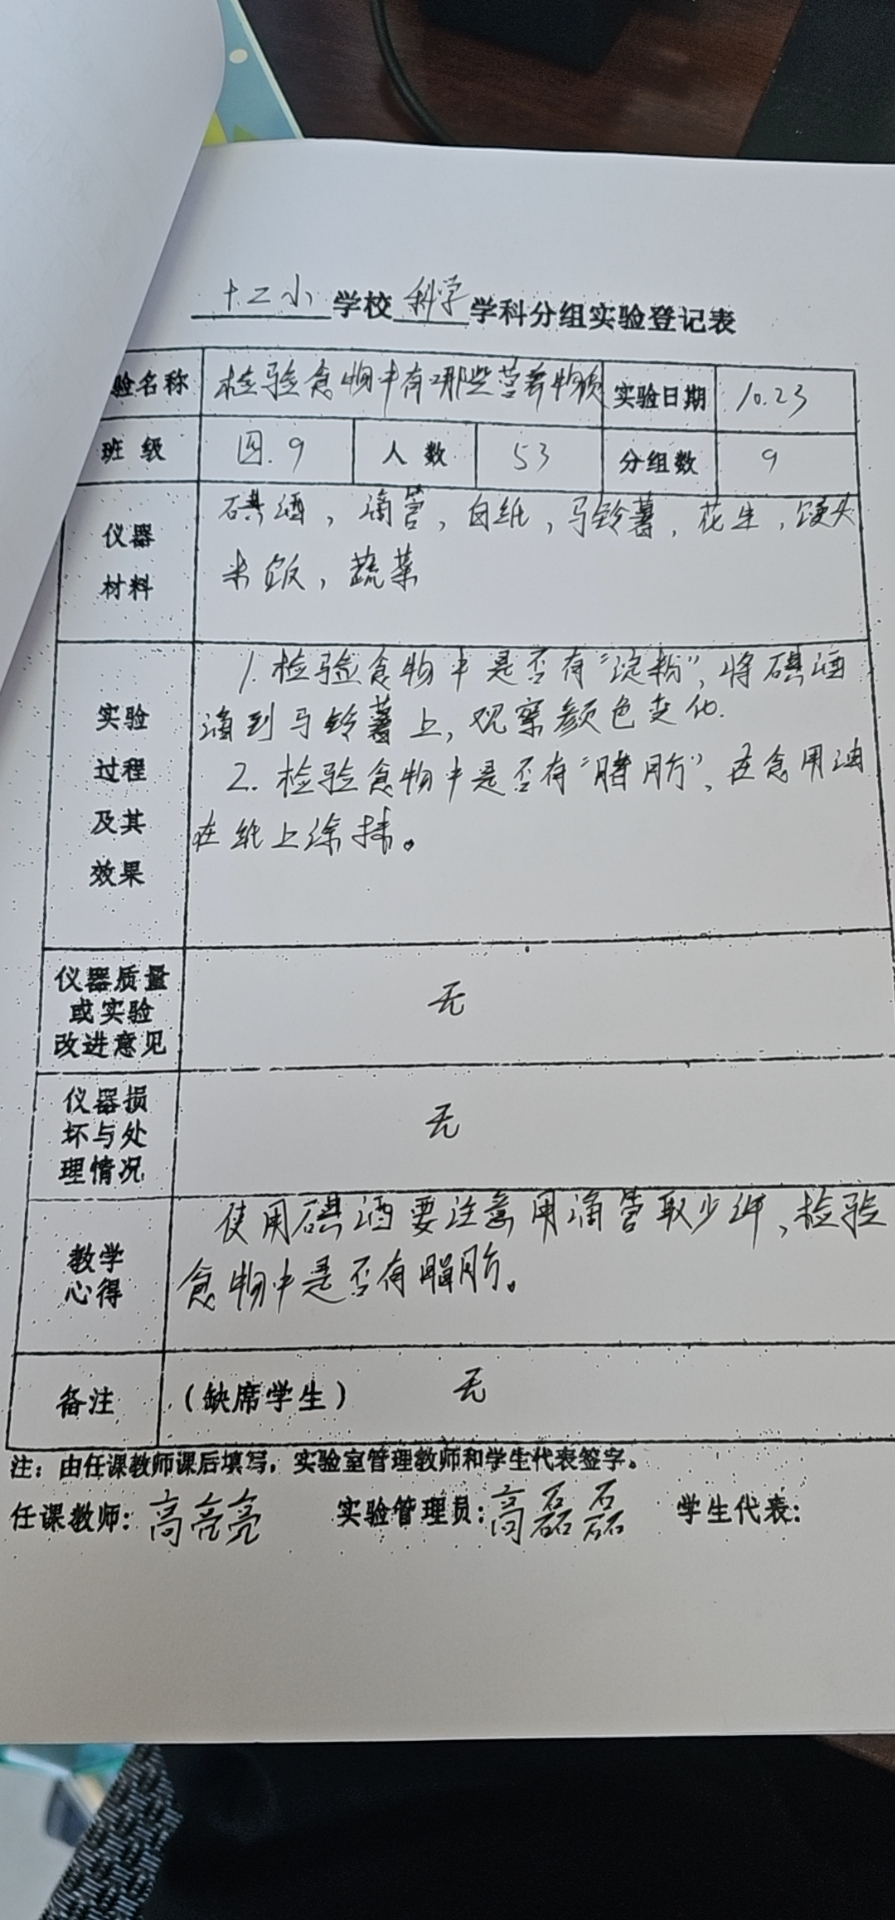 十二小学校科学学科分组实验登记表
验名称 检验食物中有哪些营养物质 实验日期 10.23
班级 四.9 人数 53 分组数 9
仪器材料
碘酒，滴管，白纸，马铃薯，花生，馒头
米饭，蔬菜
实验过程及其效果
1.检验食物中是否有“淀粉”，将碘酒
滴到马铃薯上，观察颜色变化.
2.检验食物中是否有“脂肪”，在食用油
在纸上涂抹。
仪器质量或实验改进意见 无
仪器损坏与处理情况 无
教学心得
使用碘酒要注意用滴管取少许，检验
食物中是否有脂肪。
备注 （缺席学生） 无
注：由任课教师课后填写，实验室管理教师和学生代表签字。
任课教师：高亮亮 实验管理员：高磊磊 学生代表：